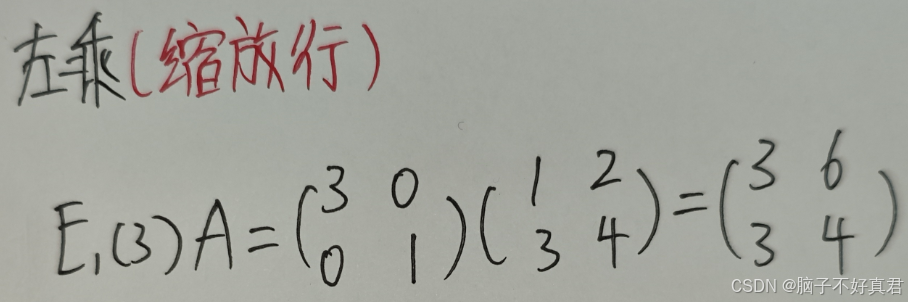 左乘(缩放行)
E₁(3)A=(3 0
0 1)(1 2
3 4)=(3 6
3 4)
CSDN @脑子不好真君